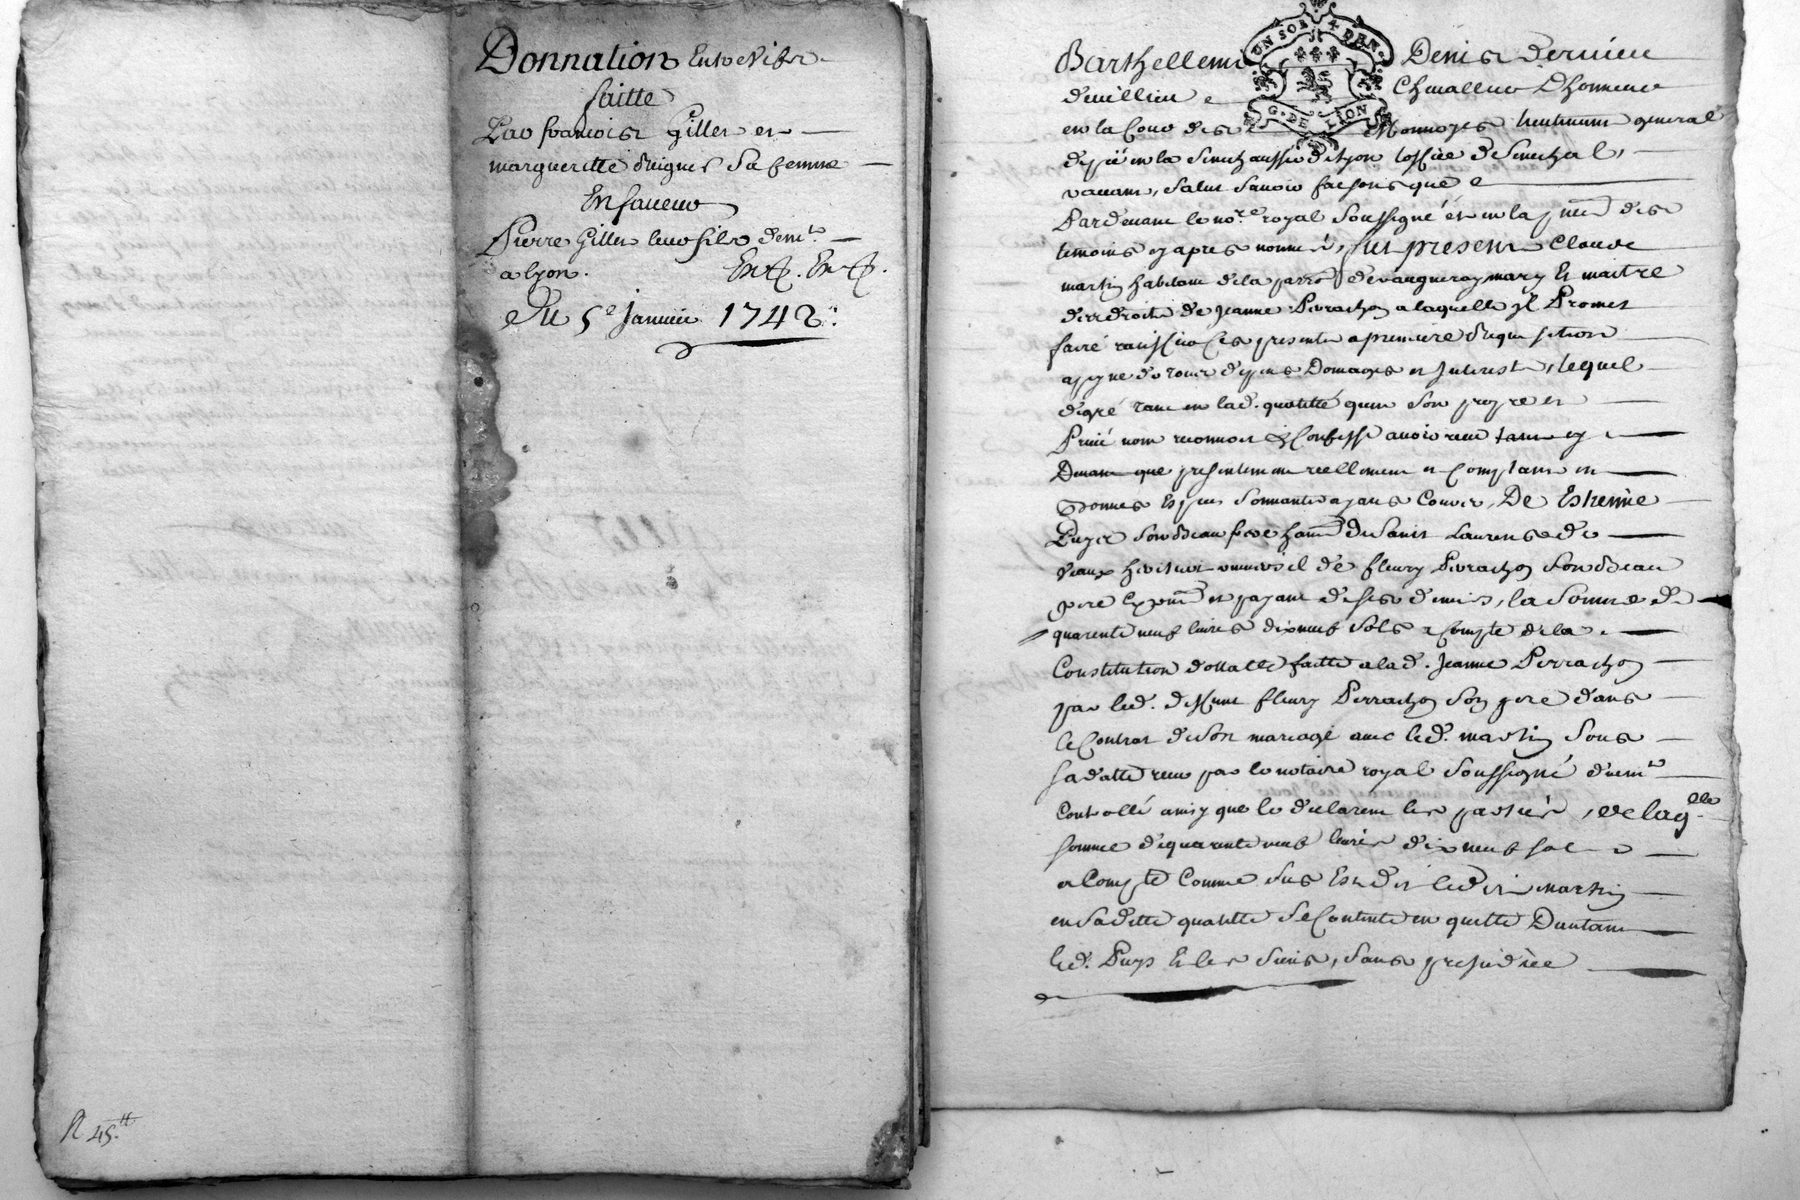 Donnation Entre Vifs
faitte
Par francois Gilles et
margueritte sa femme
En faveur
Pierre Gilles leur fils demt
a lyon. Exp. Exp.
Du 5e Janvier 1742
R 45.tt
UN SOL 4 DEN.
G. DE LION
Barthellemi Denis dervieu
devillieu Chevallier Dhonneur
en la Cour des Monnoyes lieutenant general
despée en la Senechaussée de lyon loffice de Senechal
vaccant, Salut Savoir faisons que
Pardevant le nore royal Soussigné et en la pnce des
temoins cy apres nommés, fut present Claude
martin habitant de la parr de vaugneray mary Et maitre
des droits de Jeanne Perrachon a laquelle Il Promet
faire ratiffier Ces presentes a premiere requisition
a peyne de tous depens Domages et Interest, lequel
de gré tant en lad. qualitté quen Son propre et
Privé nom reconnoit & Confesse avoir reçu tant cy
Devant que presentement reellement et Comptant en
Bonnes Especes Sonnantes ayans Cours, De Estienne
Puyer Son Beau frere hant de Saint Laurens de
Vaux heritier universel de fleury Perrachon Son Beau
pere et payant de ses deniers, la Somme de
quarente neuf livres dix neuf Sols a Compte de la
Constitution dottalle faitte a lad. Jeanne Perrachon
par led. deffunt fleury Perrachon Son pere dans
le Contrat de Son mariage avec led. martin Sous
sa datte reçu par le notaire royal Soussigné duemt
Controllé ainsy que le declarent les parties, de laqlle
somme de quarente neuf livres dix neuf sol
a Compte Comme Sus Est dit led. martin
en Sa ditte qualitté Se Contente en quitte Dautant
led. Puys Et les Siens, Sans prejudice